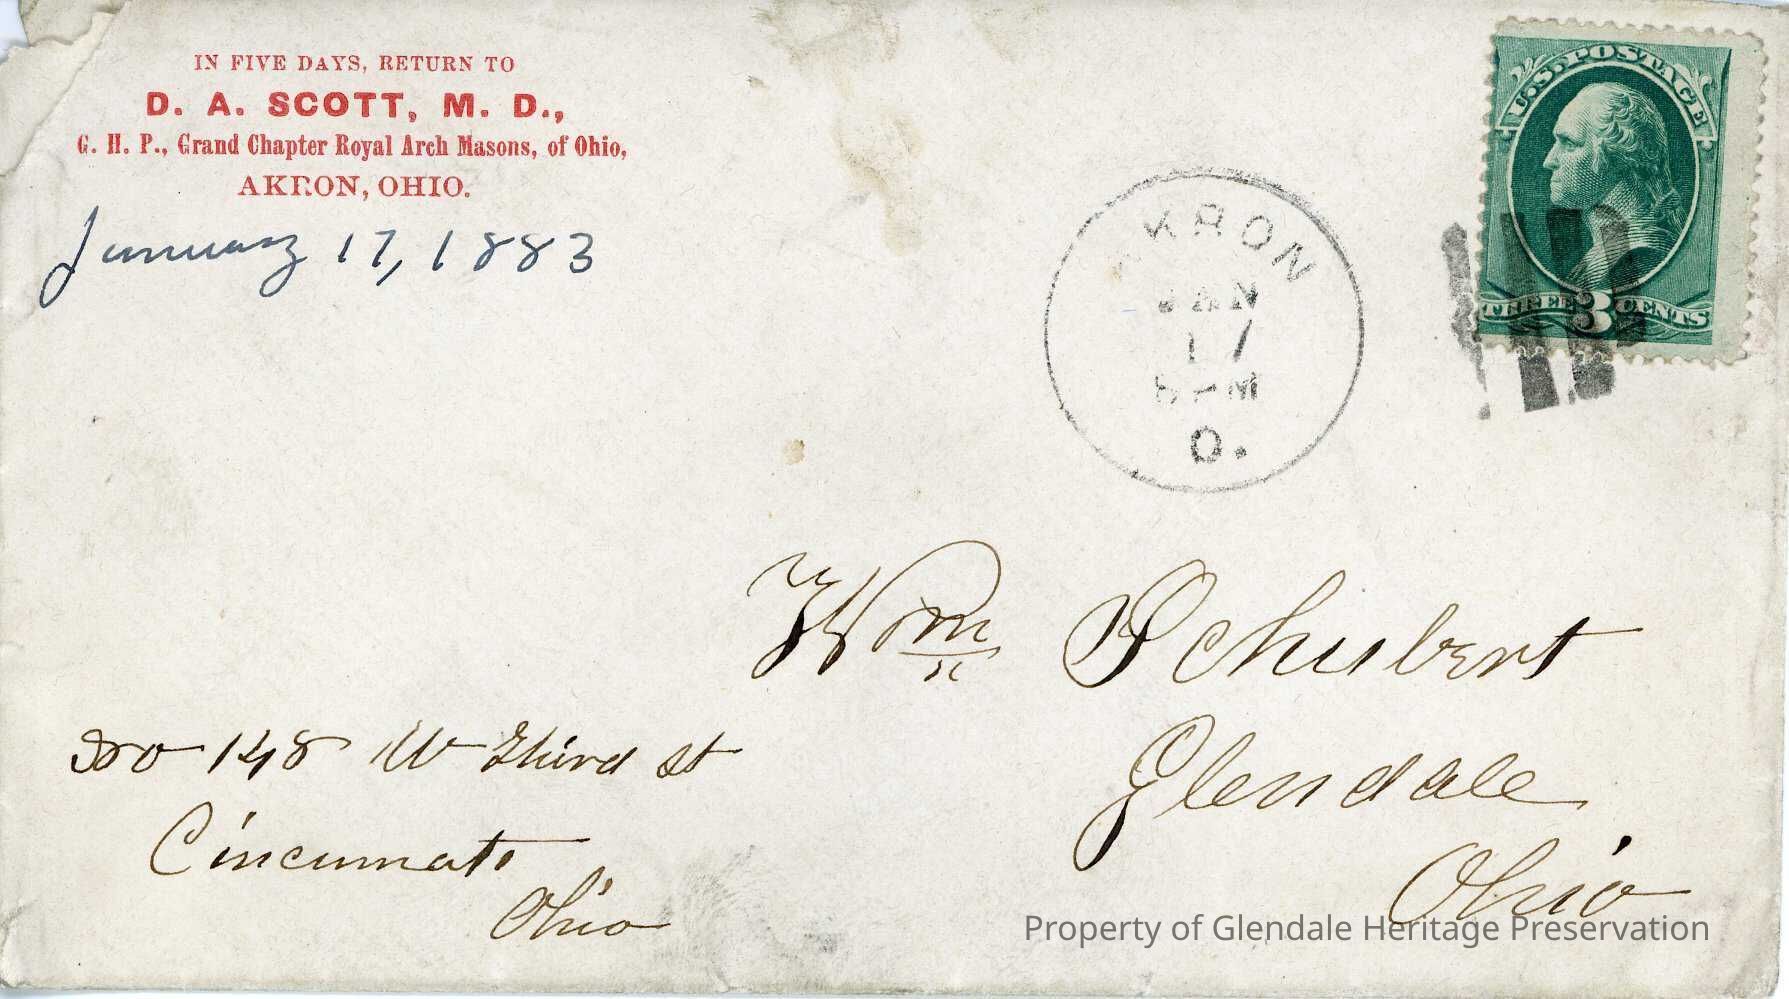 IN FIVE DAYS, RETURN TO
D. A. SCOTT, M. D.,
G. H. P., Grand Chapter Royal Arch Masons, of Ohio,
AKRON, OHIO.
January 17, 1883
U.S. POSTAGE
THREE 3 CENTS
AKRON
JAN
17
PM
O.
Wm Schubert
Glendale
Ohio
No 148 W Third st
Cincinnati
Ohio
Property of Glendale Heritage Preservation